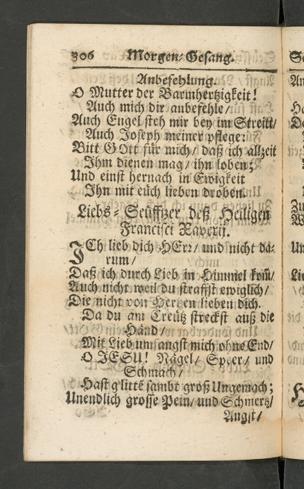 306 Morgen-Gesang.
Anbefehlung.
O Mutter der Barmhertzigkeit!
Auch mich dir anbefehle/
Auch Engel steh mir bey im Streitt/
Auch Joseph meiner pflege:
Bitt GOtt für mich/ daß ich allzeit
Ihm dienen mag/ ihn loben;
Und einst hernach in Ewigkeit
Ihn mit eüch lieben droben.
Liebs-Seüfftzer deß Heiligen
Francisci Xaverij.
ICh lieb dich HErr/ und nicht da-
rum/
Daß ich durch Lieb in Himmel kom̃/
Auch nicht weil du straffst ewiglich/
Die nicht von Hertzen lieben dich.
Da du am Creütz streckst auß die
Händ/
Mit Lieb umfangst mich ohne End/
O JESU! Nägel/ Speer/ und
Schmach/
Hast g'litte sambt groß Ungemach;
Unendlich grosse Pein/ und Schmertz/
Angst/